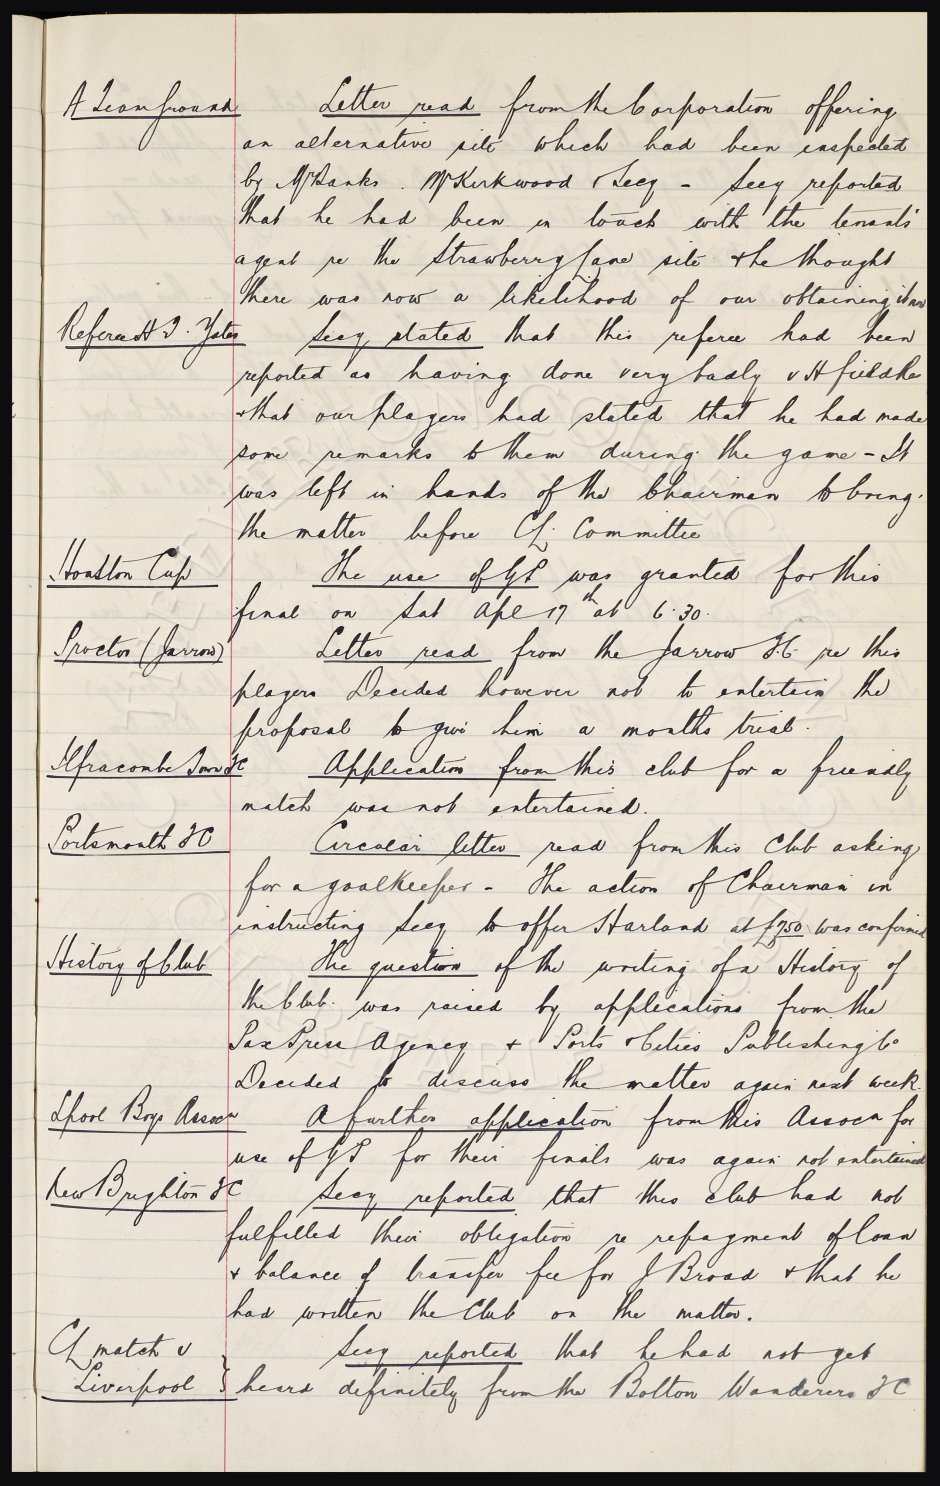 A Team Ground Letter read from the Corporation offering
an alternative site which had been inspected
by Mr Banks. Mr Kirkwood & Secy - Secy reported
that he had been in touch with the tenants'
agent re the Strawberry Lane site & he thought
there was now a likelihood of our obtaining it now
Referee H T. Yates Secy stated that this referee had been
reported as having done very badly v Hfield Rs
& that our players had stated that he had made
some remarks to them during the game - It
was left in hands of the Chairman to bring
the matter before CL. Committee
Houston Cup The use of GP was granted for this
final on Sat Apl 17th at 6.30.
Proctor (Jarrow) Letter read from the Jarrow F.C. re this
players Decided however not to entertain the
proposal to give him a months trial.
Ilfracombe Town FC Application from this club for a friendly
match was not entertained.
Portsmouth FC Circular letter read from this Club asking
for a goalkeeper - The action of Chairman in
instructing Secy to offer Harland at £750 was confirmed
History of Club The question of the writing of a History of
the Club. was raised by applications from the
Pax Press Agency & Ports & Cities Publishing Co
Decided to discuss the matter again next week.
Lpool Boys Assocn A further application from this Assocn for
use of GP for their finals was again not entertained
New Brighton FC Secy reported that this club had not
fulfilled their obligation re repayment of loan
& balance of transfer fee for J Broad & that he
had written the Club on the matter.
CL match v Secy reported that he had not yet
Liverpool } heard definitely from the Bolton Wanderers FC